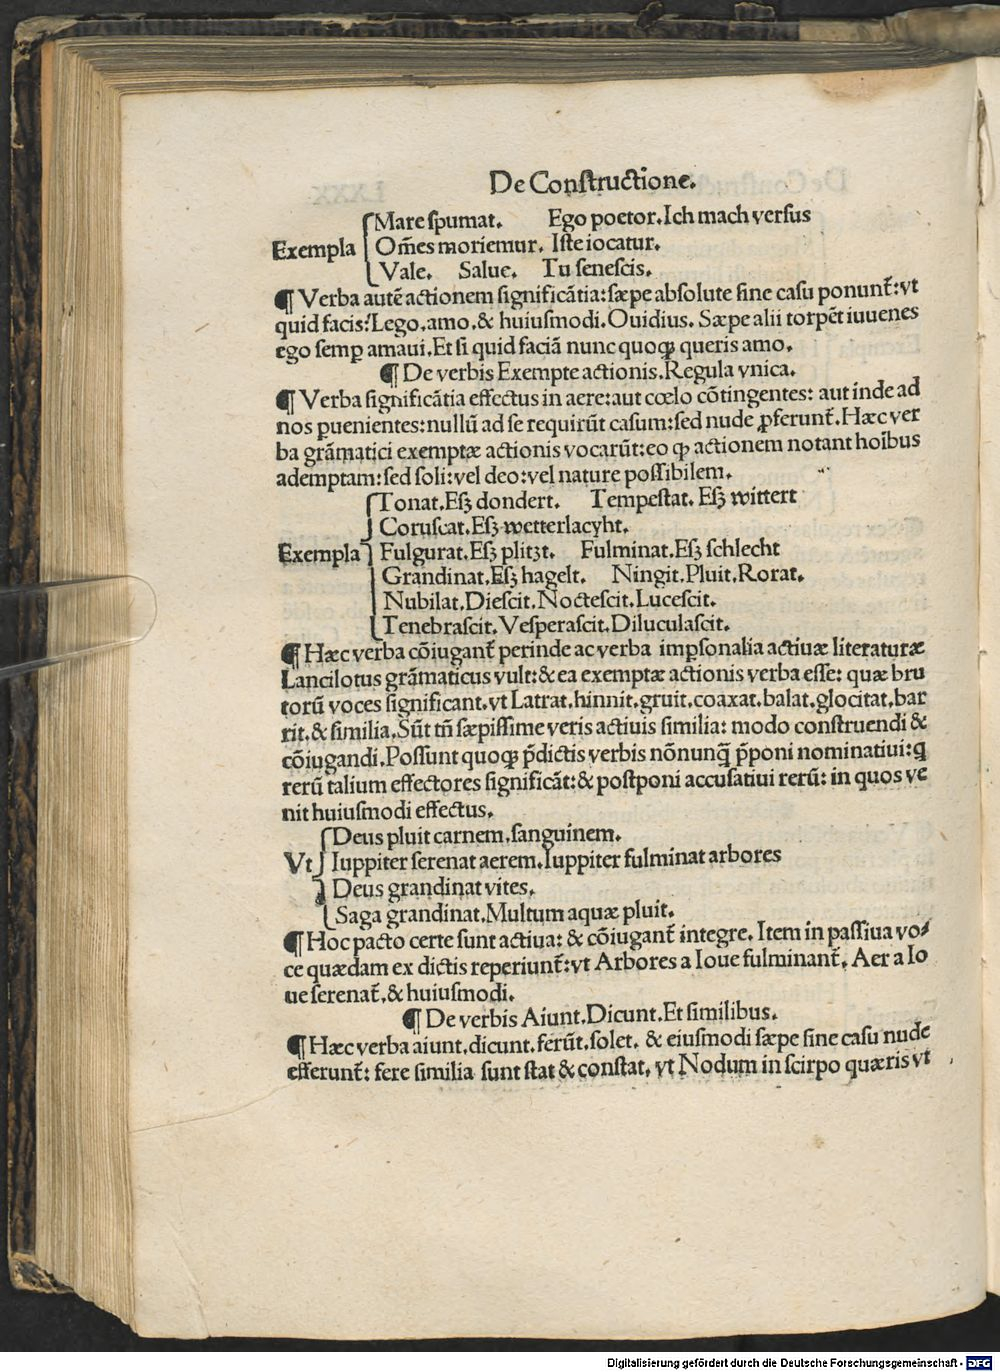 De Constructione.
Mare spumat. Ego poetor. Ich mach versus
Exempla Om̃es moriemur. Iste iocatur.
Vale. Salue. Tu senescis.
¶ Verba autẽ actionem significãtia: sæpe absolute sine casu ponunt̃: vt
quid facis? Lego, amo, & huiusmodi. Ouidius. Sæpe alii torpẽt iuuenes
ego semꝑ amaui. Et si quid faciã nunc quoqꝫ queris amo.
¶ De verbis Exempte actionis. Regula vnica.
¶ Verba significãtia effectus in aere: aut cœlo cõtingentes: aut inde ad
nos ꝑuenientes: nullũ ad se requirũt casum: sed nude ꝓferunt̃. Hæc ver
ba grãmatici exemptæ actionis vocarũt: eo ꝙ actionem notant hoĩbus
ademptam: sed soli: vel deo: vel nature possibilem.
Tonat. Eſʒ dondert. Tempestat. Eſʒ wittert
Coruscat. Eſʒ wetterlacyht.
Exempla Fulgurat. Eſʒ plitzt. Fulminat. Eſʒ schlecht
Grandinat. Eſʒ hagelt. Ningit. Pluit. Rorat.
Nubilat. Diescit. Noctescit. Lucescit.
Tenebrascit. Vesperascit. Diluculascit.
¶ Hæc verba cõiugant̃ perinde ac verba imꝑsonalia actiuæ literaturæ
Lancilotus grãmaticus vult: & ea exemptæ actionis verba esse: quæ bru
torũ voces significant. vt Latrat, hinnit, gruit, coaxat, balat, glocitat, bar
rit, & similia. Sũt tñ sæpissime veris actiuis similia: modo construendi &
cõiugandi. Possunt quoqꝫ p̃dictis verbis nõnunq̃ p̃poni nominatiui: q̃
rerũ talium effectores significãt: & postponi accusatiui rerũ: in quos ve
nit huiusmodi effectus.
Deus pluit carnem, sanguinem.
Vt Iuppiter serenat aerem. Iuppiter fulminat arbores
Deus grandinat vites.
Saga grandinat. Multum aquæ pluit.
¶ Hoc pacto certe sunt actiua: & cõiugant̃ integre. Item in passiua vo⸗
ce quædam ex dictis reperiunt̃: vt Arbores a Ioue fulminant̃. Aer a Io
ue serenat̃, & huiusmodi.
¶ De verbis Aiunt. Dicunt. Et similibus.
¶ Hæc verba aiunt, dicunt, ferũt, solet, & eiusmodi sæpe sine casu nude
efferunt̃: fere similia sunt stat & constat, vt Nodum in scirpo quæris vt
Digitalisierung gefördert durch die Deutsche Forschungsgemeinschaft - DFG